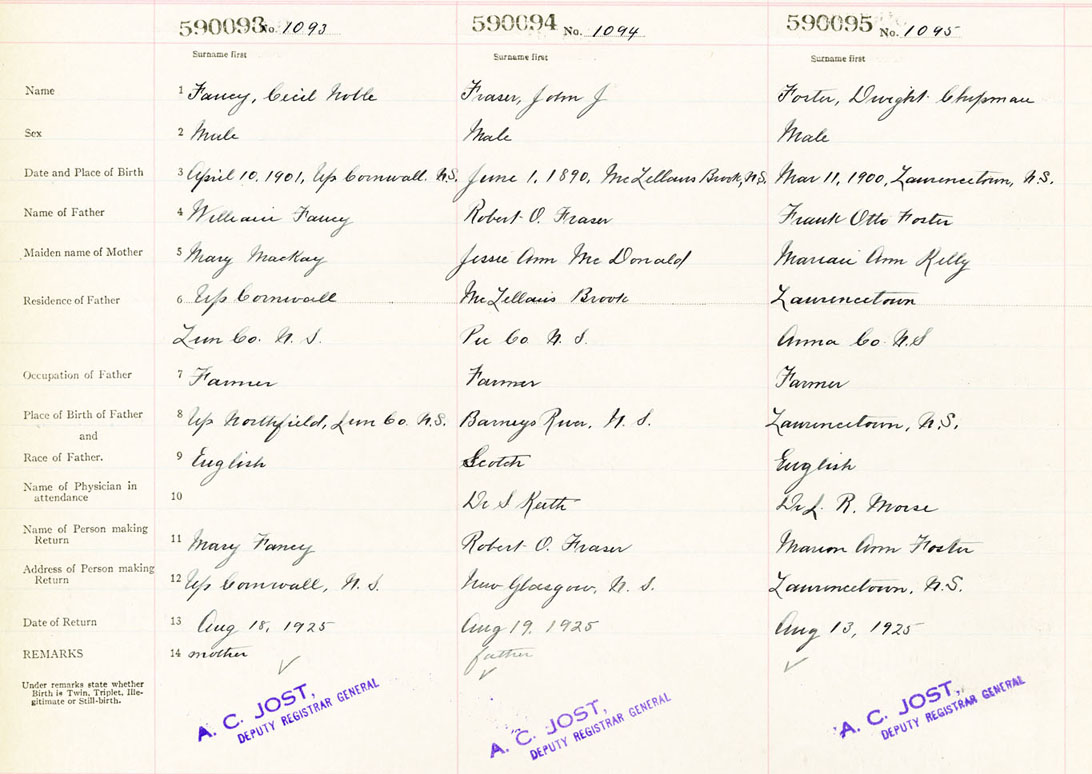 590093 No. 1093 590094 No. 1094 590095 No. 1095
Surname first Surname first Surname first
Name 1 Fancy, Cecil Noble Fraser, John J Foster, Dwight Chipman
Sex 2 Male Male Male
Date and Place of Birth 3 April 10, 1901, Up Cornwall. N.S. June 1, 1890, McLellans Brook, N.S. Mar 11, 1900, Lawrencetown, N.S.
Name of Father 4 William Fancy Robert O. Fraser Frank Otto Foster
Maiden name of Mother 5 Mary MacKay Jessie Ann Mc Donald Marion Ann Kelly
Residence of Father 6 Up Cornwall McLellans Brook Lawrencetown
Lun Co. N. S. Pic Co. N. S. Anna Co. N.S
Occupation of Father 7 Farmer Farmer Farmer
Place of Birth of Father 8 Up Northfield, Lun Co. N.S. Barneys River, N. S. Lawrencetown, N.S.
and
Race of Father. 9 English Scotch English
Name of Physician in
attendance 10 Dr S Keith Dr L. R. Morse
Name of Person making
Return 11 Mary Fancy Robert O. Fraser Marion Ann Foster
Address of Person making
Return 12 Up Cornwall, N. S. New Glasgow, N. S. Lawrencetown, N.S.
Date of Return 13 Aug 18, 1925 Aug 19, 1925 Aug 13, 1925
REMARKS 14 mother father
Under remarks state whether
Birth is Twin, Triplet, Ille-
gitimate or Still-birth.
A. C. JOST, A. C. JOST, A. C. JOST,
DEPUTY REGISTRAR GENERAL DEPUTY REGISTRAR GENERAL DEPUTY REGISTRAR GENERAL